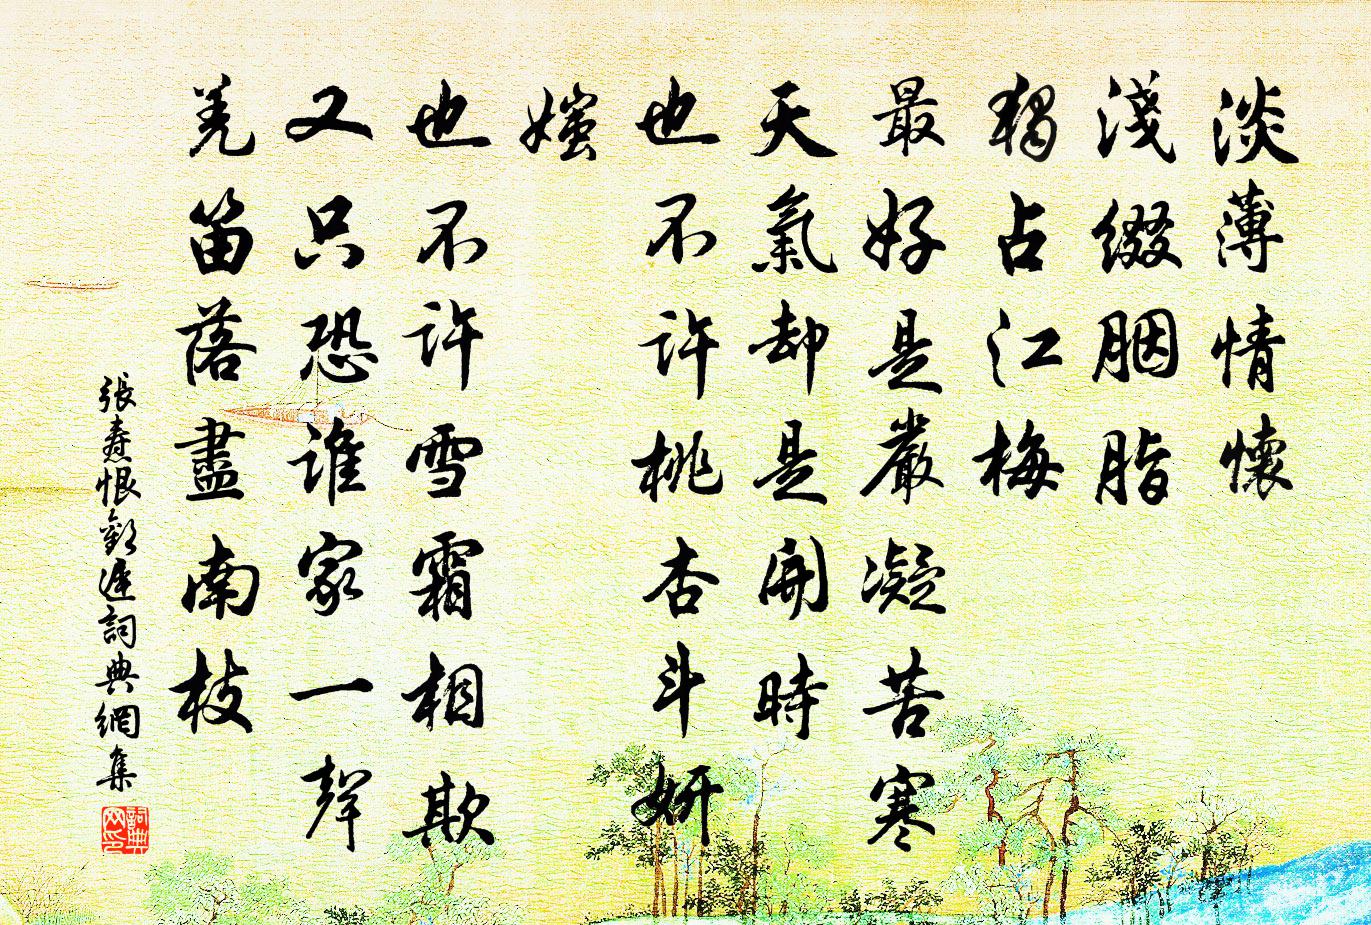 淡薄情懷
淺綴胭脂
獨占江梅
最好是嚴凝苦寒
天氣却是開時
也不許桃杏斗妍
媸
也不許雪霜相欺
又只恐誰家一聲
羌笛落盡南枝
張燾恨歡遲詞典網集
詞典网印